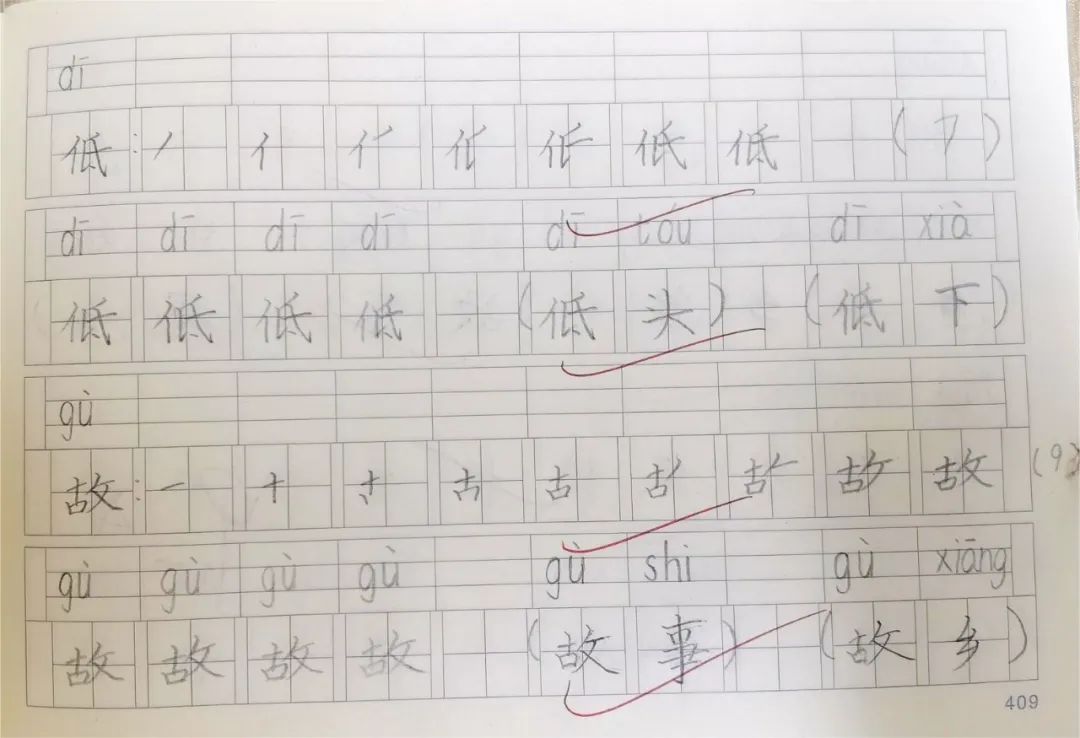 dī
低：ノ 亻 亻 低 低 (7)
dī dī dī dī dī tóu dī xià
低 低 低 低 (低 头) (低 下)
gù
故：一 十 古 故 故 (9)
gù gù gù gù gù shi gù xiāng
故 故 故 故 (故 事) (故 乡)
409